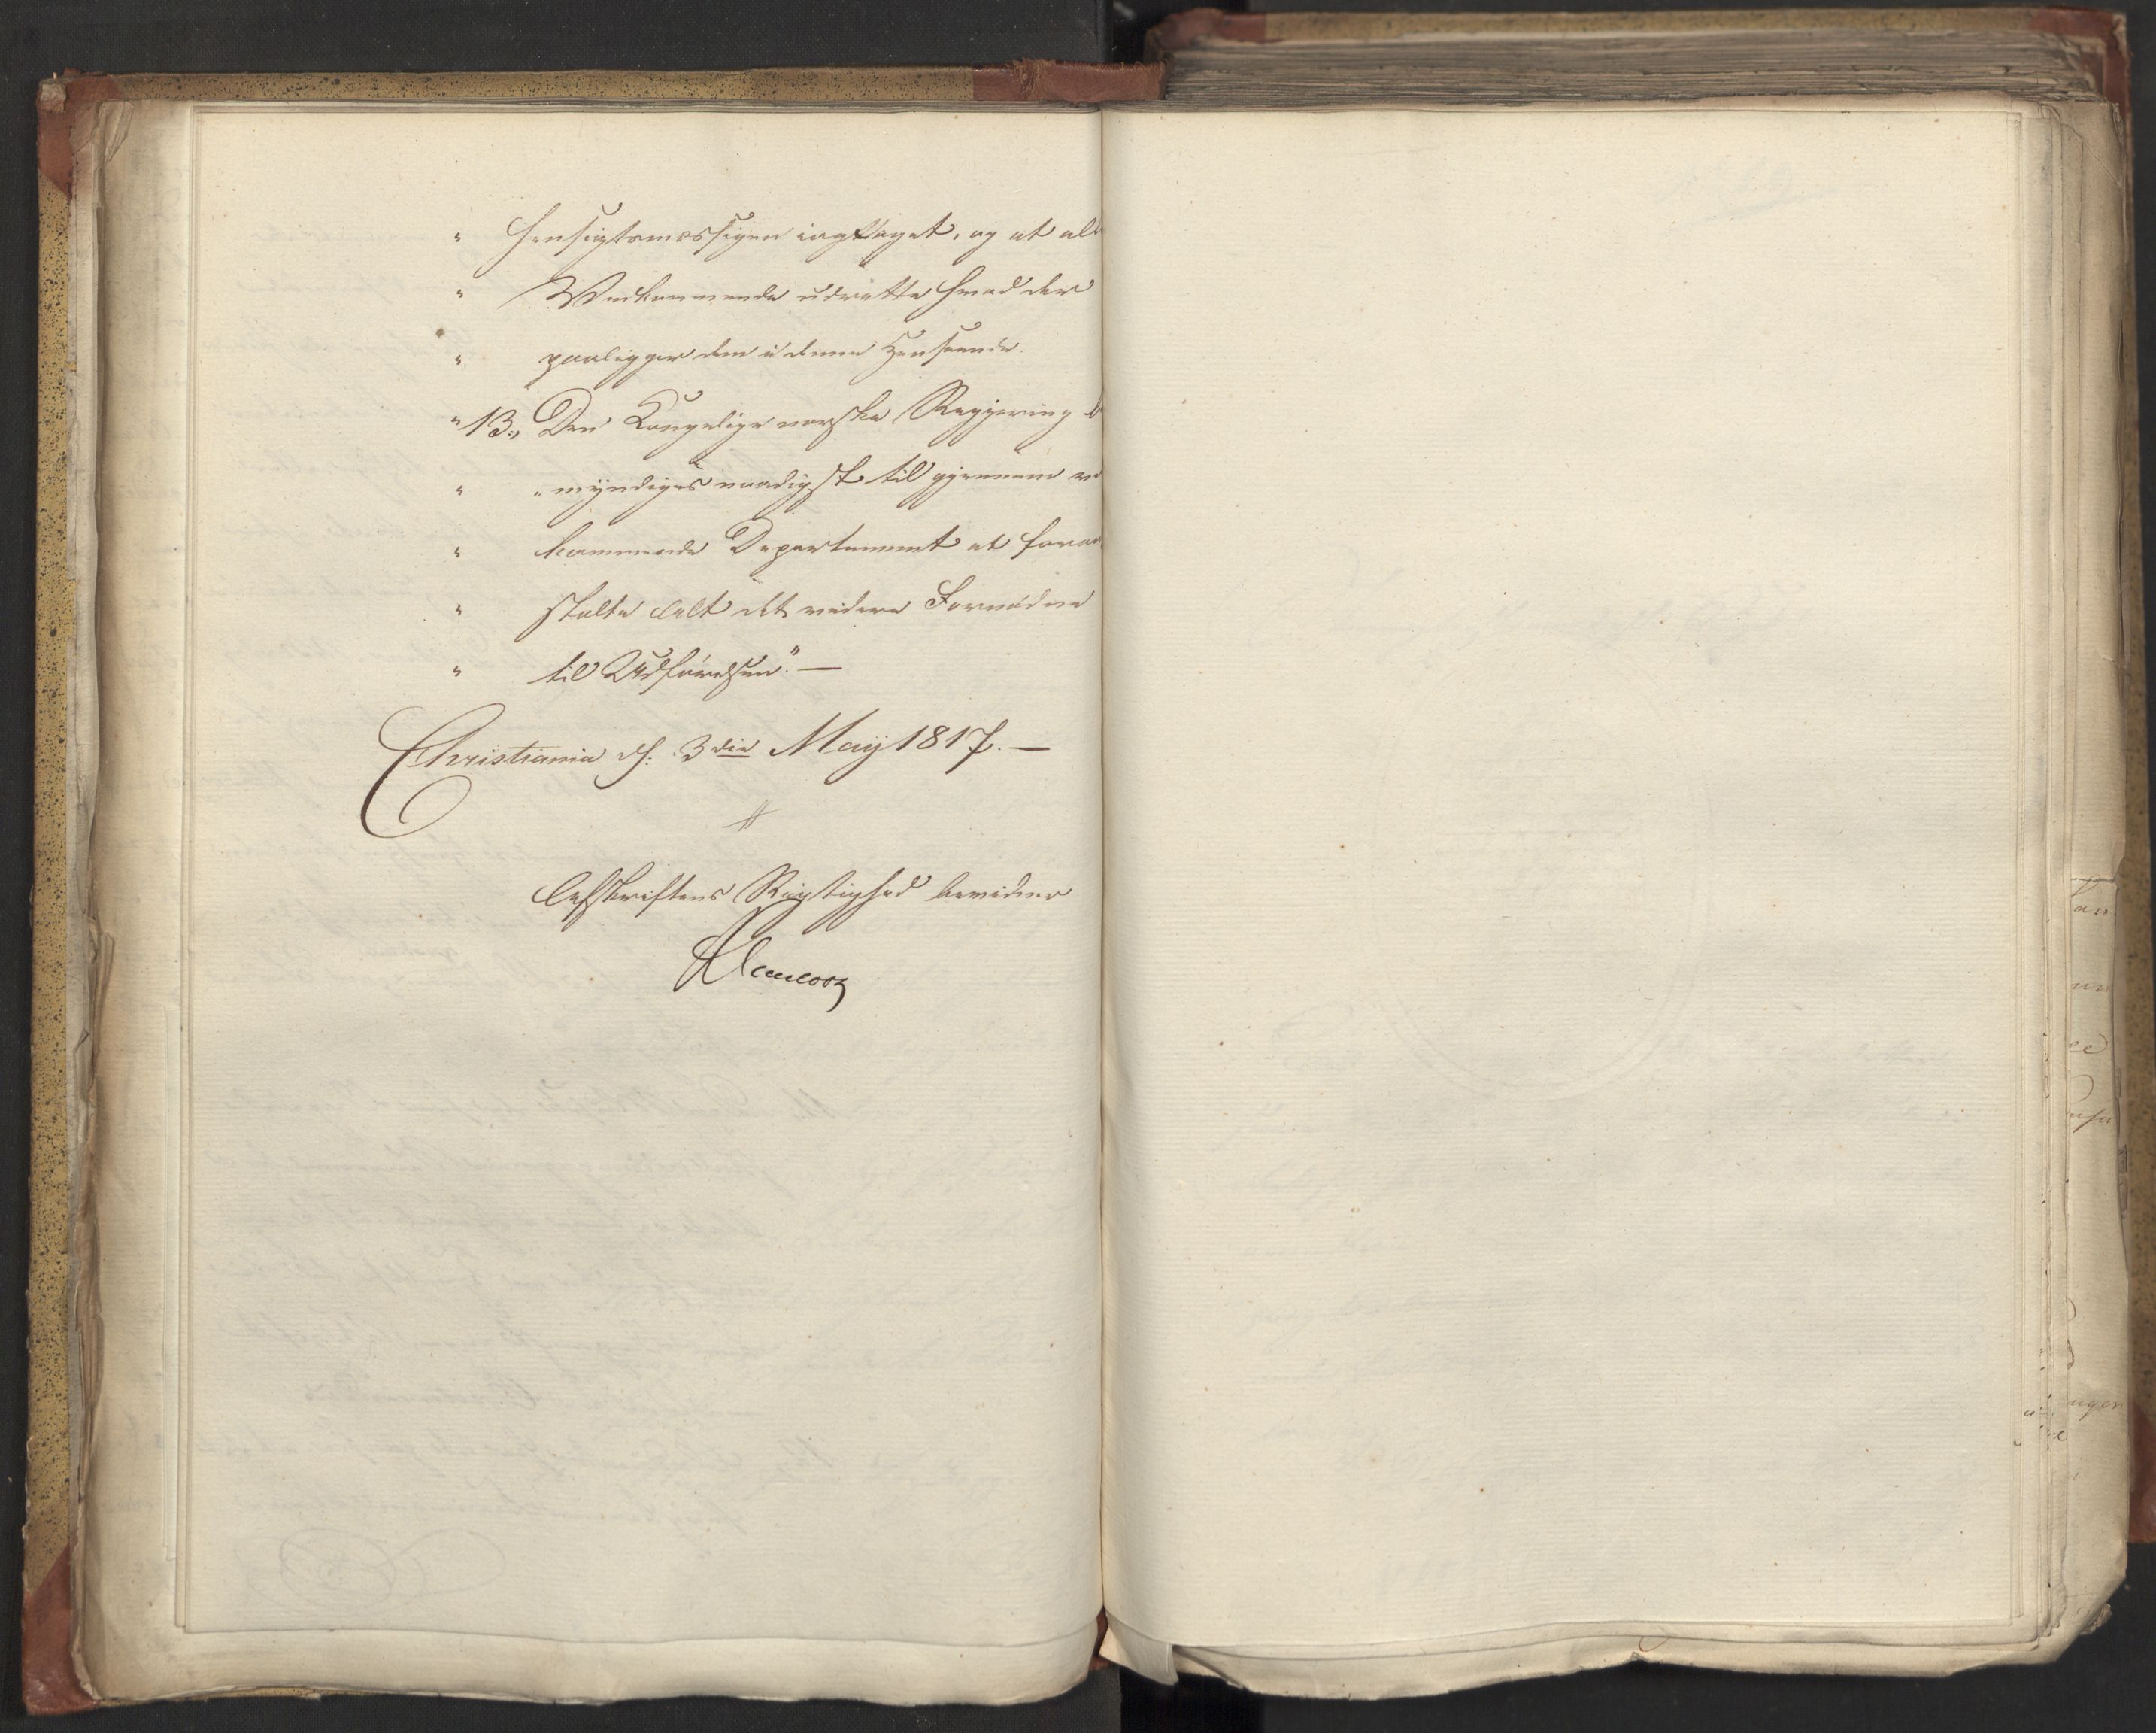 " hensigtsmæssigen iagttaget, og at all
" Vedkommende udrette hvad der
" paaligger dem i denne Henseende.
" 13:, Den Kongelige norske Regjering b
" "myndiges naadigst til gjennem ved
" kommende Departement at foran
" stalte alt det videre Fornødne
" til Udførelsen". —
Christiania d: 3die Maÿ 1817. —
Afskriftens Rigtighed bevidner